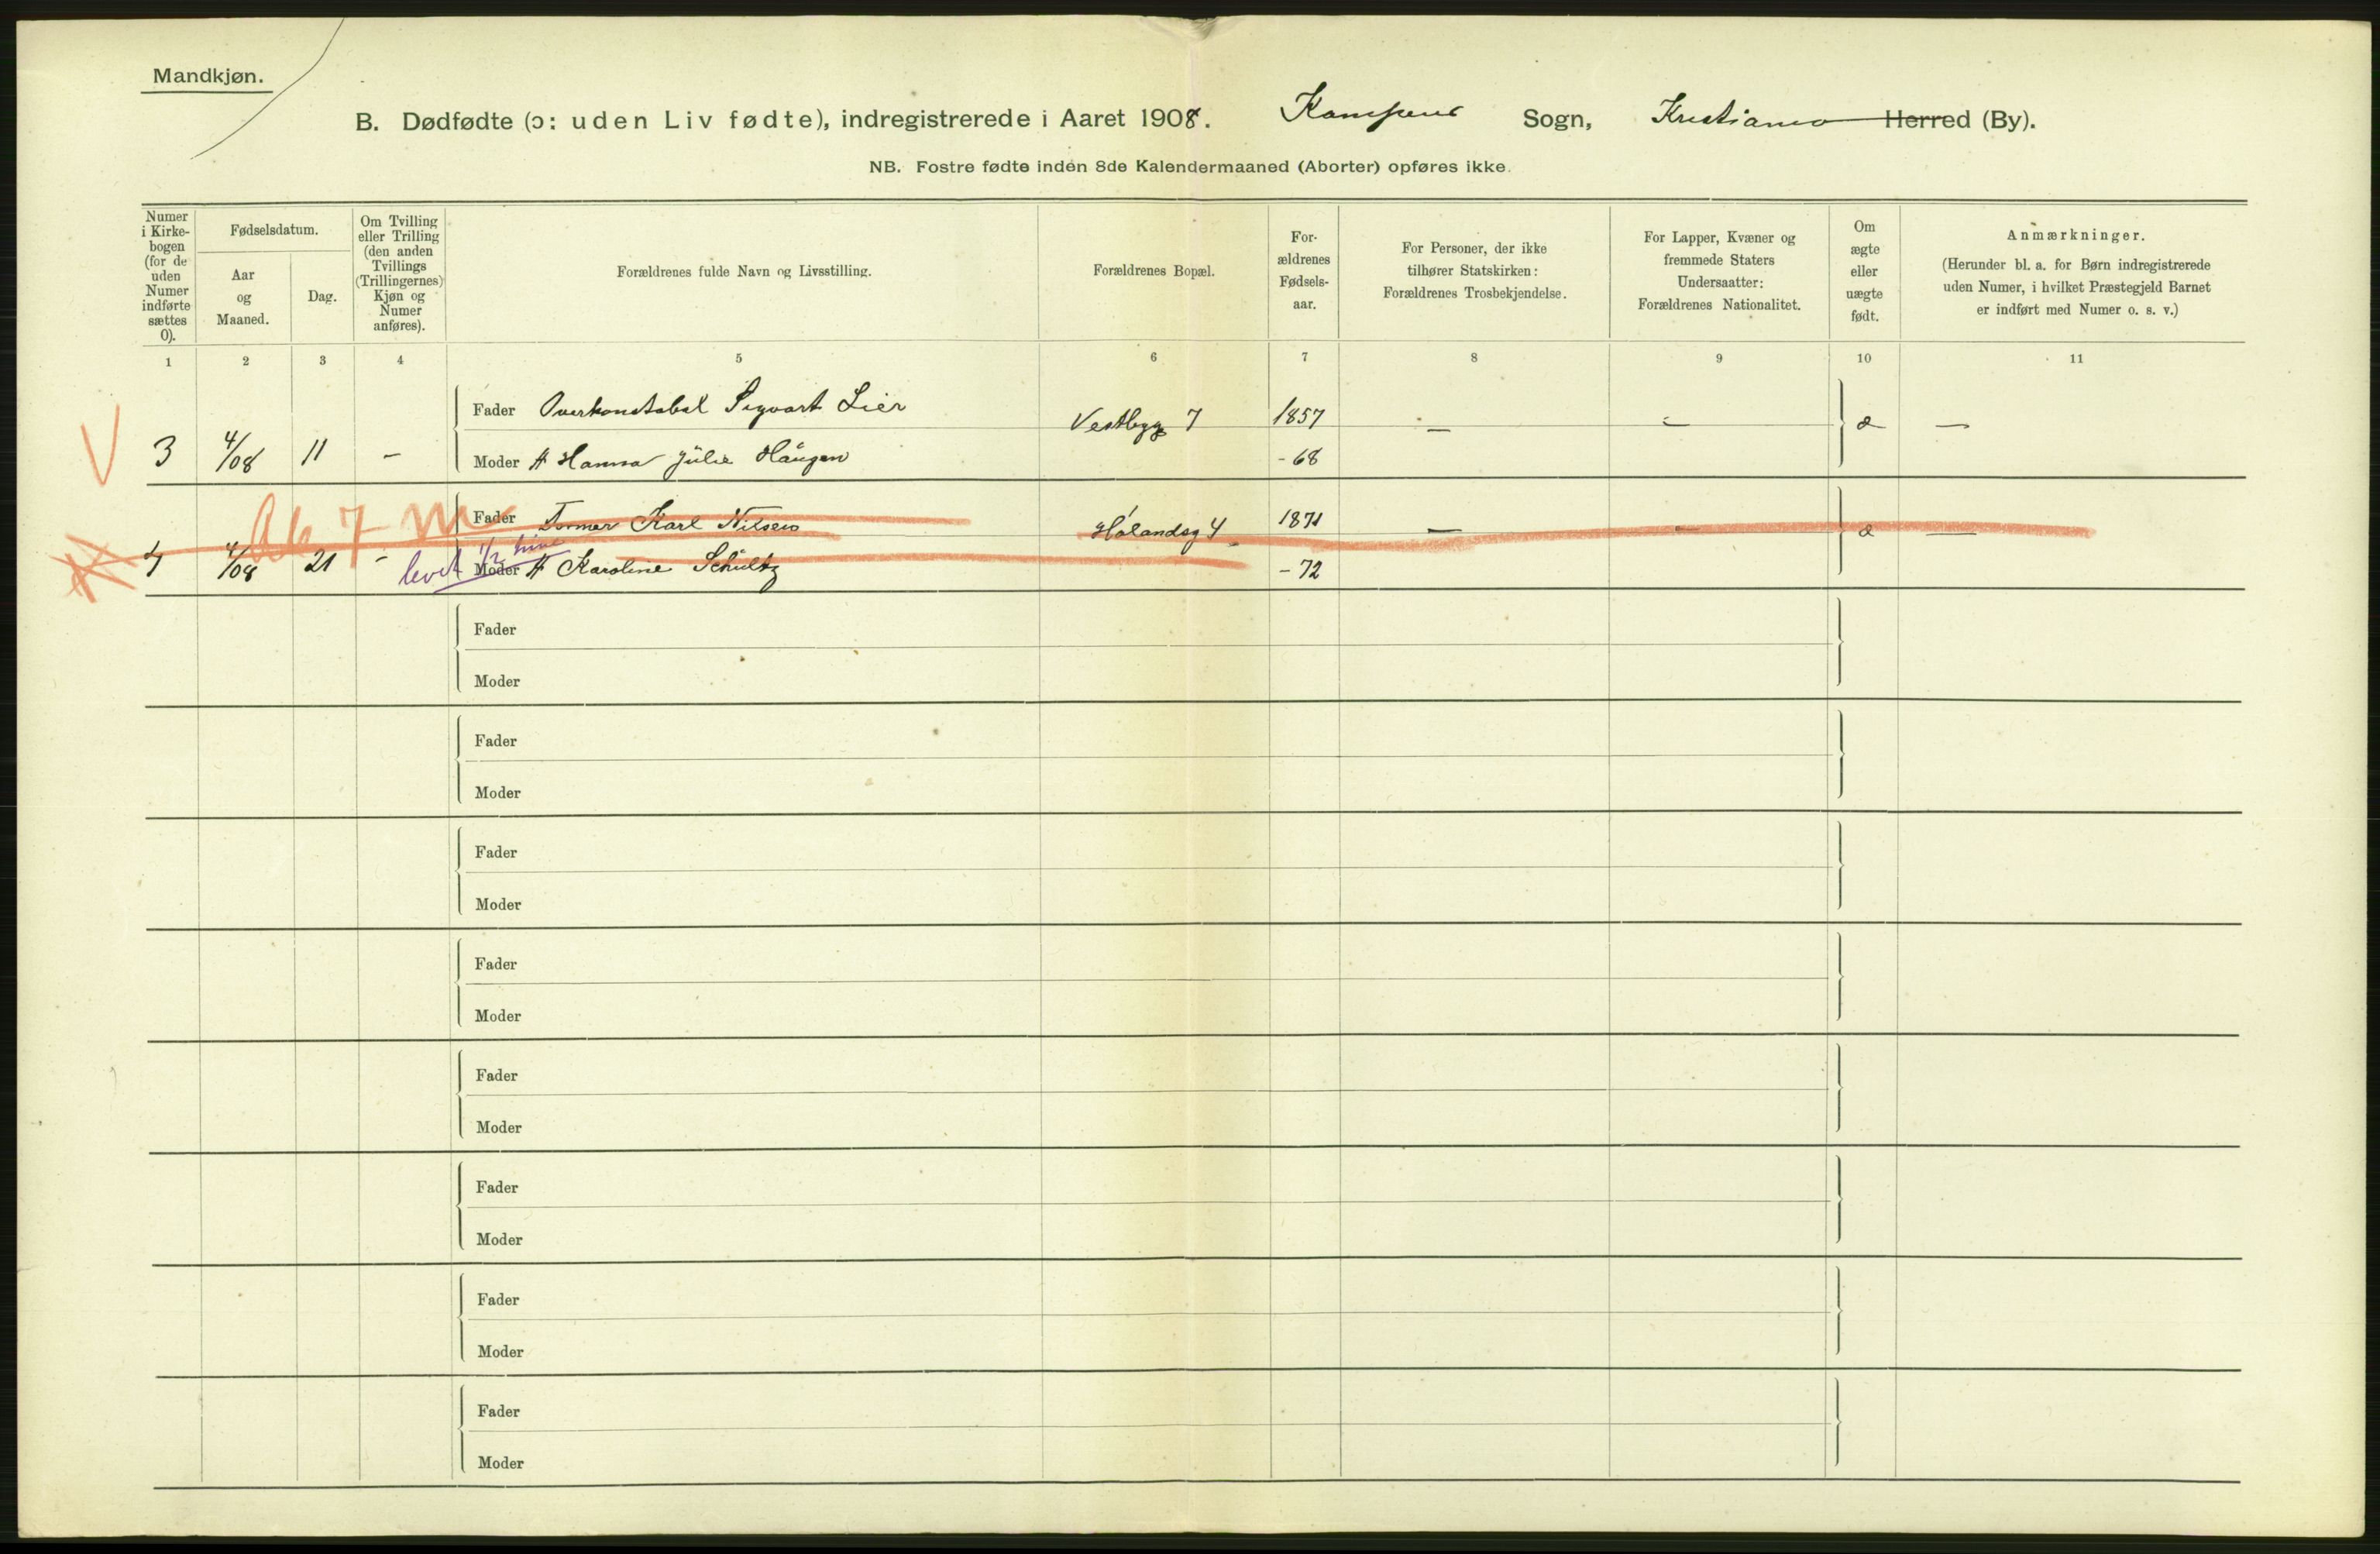 Mandkjøn.
B. Dødfødte (ɔ: uden Liv fødte), indregistrerede i Aaret 1908. Kampens Sogn, Kristiania Herred (By).
NB. Fostre fødte inden 8de Kalendermaaned (Aborter) opføres ikke.
Numer i Kirke-bogen (for de uden Numer indførte sættes 0).
Fødselsdatum.
Aar og Maaned.
Dag.
Om Tvilling eller Trilling (den anden Tvillings (Trillingernes) Kjøn og Numer anføres).
Forældrenes fulde Navn og Livsstilling.
Forældrenes Bopæl.
For-ældrenes Fødsels-aar.
For Personer, der ikke tilhører Statskirken: Forældrenes Trosbekjendelse.
For Lapper, Kvæner og fremmede Staters Undersaatter: Forældrenes Nationalitet.
Om ægte eller uægte født.
Anmærkninger.
(Herunder bl. a. for Børn indregistrerede uden Numer, i hvilket Præstegjeld Barnet er indført med Numer o. s. v.)
1 2 3 4 5 6 7 8 9 10 11
V
Fader Overkonstabel Sigvart Lier Vestbygg 7 1857 — — æ —
3 4/08 11 — Moder H Hanna Julie Haugen - 68
Fader Former Karl Nilsen Hølandsg 4 1871 — — æ —
7 m
levet 1/2 time
4 4/08 21 - Moder H Karoline Schültz - 72
Fader
Moder
Fader
Moder
Fader
Moder
Fader
Moder
Fader
Moder
Fader
Moder
Fader
Moder
Fader
Moder